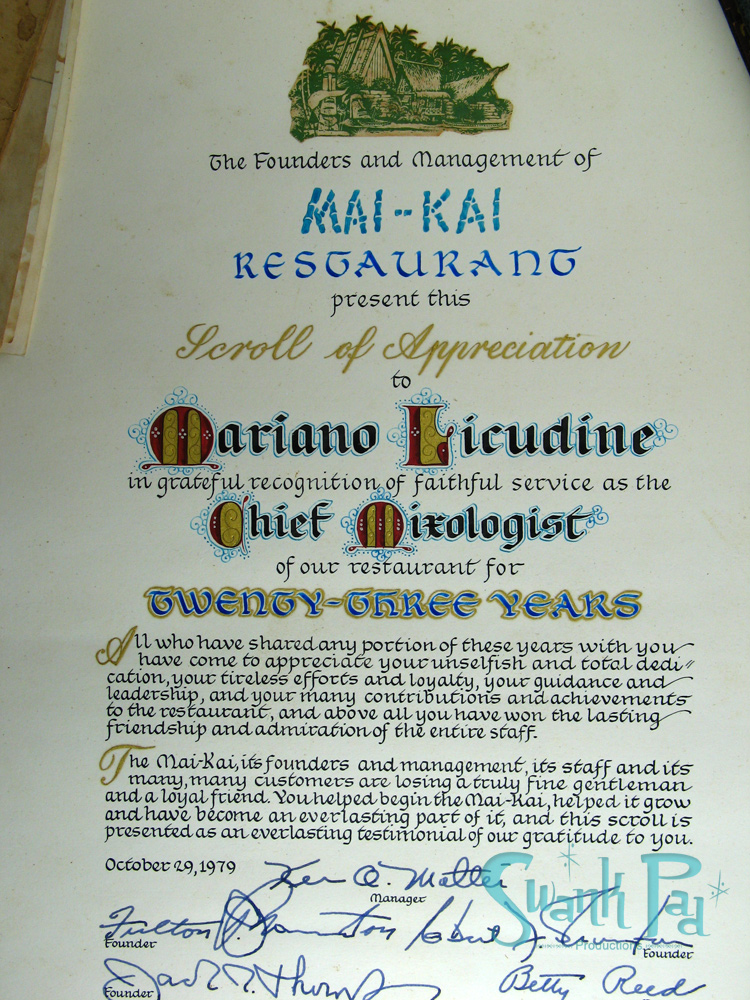 The Founders and Management of
MAI-KAI
RESTAURANT
present this
Scroll of Appreciation
to
Mariano Licudine
in grateful recognition of faithful service as the
Chief Mixologist
of our restaurant for
TWENTY-THREE YEARS
All who have shared any portion of these years with you
have come to appreciate your unselfish and total dedi-
cation, your tireless efforts and loyalty, your guidance and
leadership, and your many contributions and achievements
to the restaurant, and above all you have won the lasting
friendship and admiration of the entire staff.
The Mai-Kai, its founders and management, its staff and its
many, many customers are losing a truly fine gentleman
and a loyal friend. You helped begin the Mai-Kai, helped it grow
and have become an everlasting part of it, and this scroll is
presented as an everlasting testimonial of our gratitude to you.
October 29, 1979
Manager
Swank Pad
Productions
Founder
Founder
Founder
Betty Reed